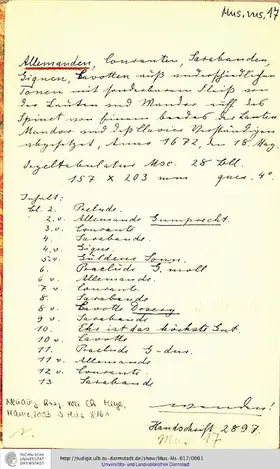 Mus. ms. 17
Allemanden, Couranten, Sarabanden,
Giquen, Cavotten auß underschidlichen
Tonen mit sonderbarem Fleiß von
der Lauten und Mandor auff das
Spinet von einem beeder der Lauten
Mandor und deß Clavier Verständigen
abgesetzt, Anno 1672, den 18. May.
Orgeltabulatur Msc. 28 Bll.
157 x 203 mm quer. 4°
Inhalt:
Bl. 2. Prelude.
2.v. Allemande Gumprecht.
3.v. Courante
4. Sarabande.
4.v. Gigue.
5.v. Güldene Sonn.
6. Praelude G. moll
6.v. Allemande.
7.v. Courante.
8. Sarabande
8.v. Cavotte
9.v. Sarabande.
10. Ehr ist das höchste Gut.
10.v. Cavotte
11. Prelude G-dur.
11.v. Allemande
12.v. Courante.
13 Sarabande
wenden!
von Ch. Meyer,
2003
Handschrift 2897.
Mus 17
TECHNISCHE
UNIVERSITÄT
DARMSTADT
http://tudigit.ulb.tu-darmstadt.de/show/Mus-Ms-017/0001
Universitäts- und Landesbibliothek Darmstadt